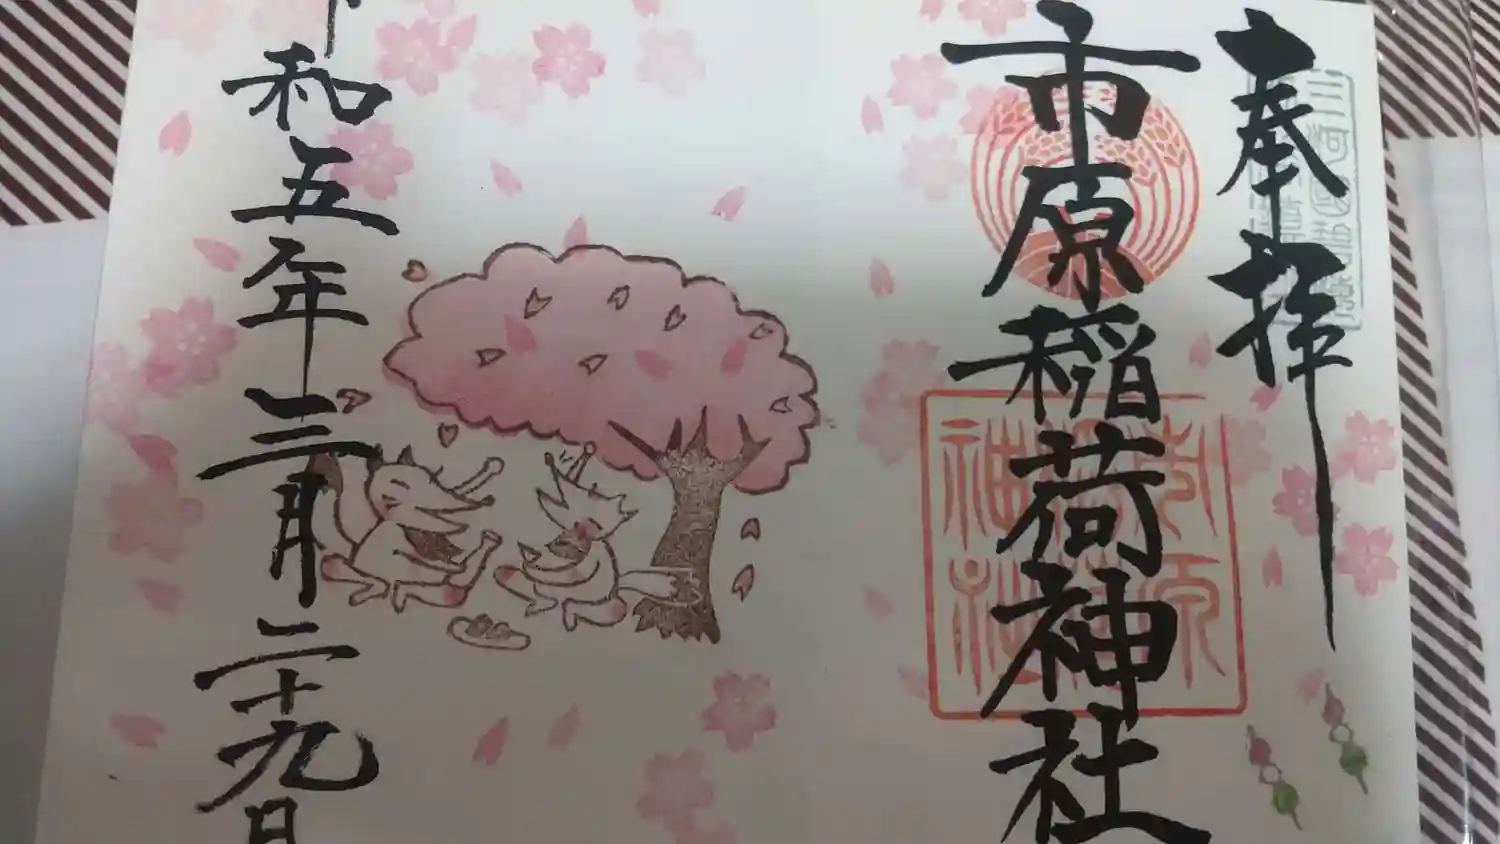 奉拝
市原稲荷神社
和五年三月二十九日